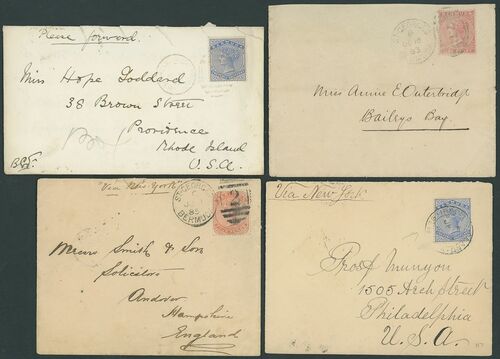 Please forward.
BERMUDA
Miss Hope Goddard
38 Brown Street
Providence
Rhode Island
U.S.A.
BERMUDA
Miss Annie E Outerbridge
Baileys Bay.
Via New York
ST GEORGES
BERMUDA
85
2
Messrs Smith & Son
Solicitors
Andover
Hampshire
England
Via New York
Prof Munyon
1505 Arch Street
Philadelphia
U.S.A.